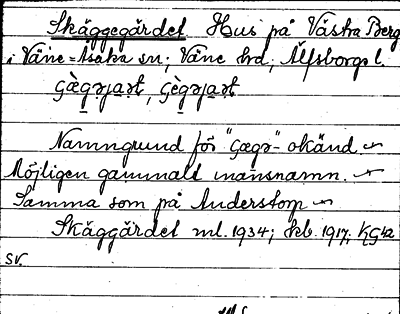 Skäggegärdet Hus på Västra Berg
i Väne-Åsaka sn; Väne hd, Älfsborgs l.
Namngrund för "çægə-" okänd
Möjligen gammalt mansnamn.
Samma som på Anderstorp
Skäggärdet ml. 1934; kb. 1917,
sv.